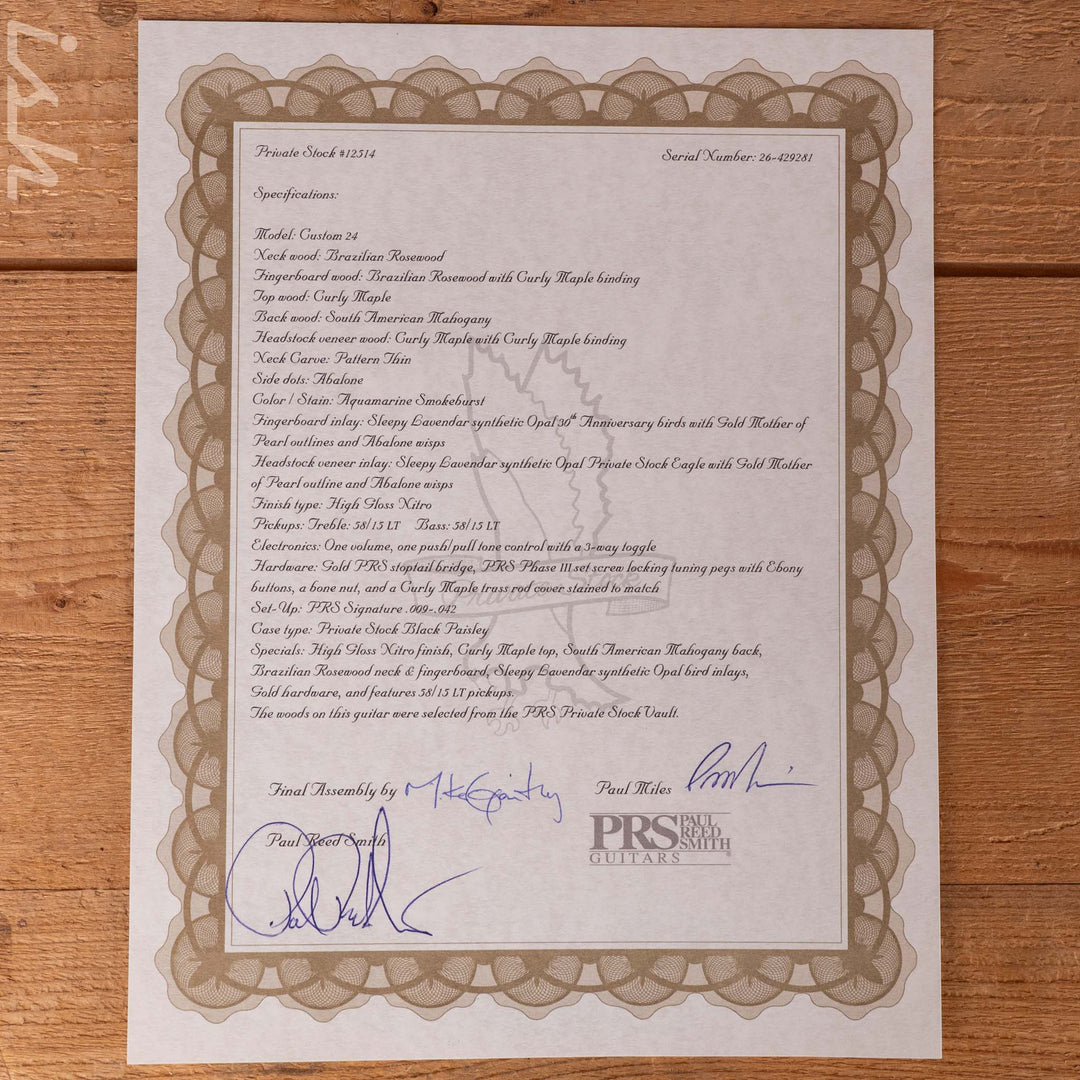 ish
Private Stock #12514
Serial Number: 26-429281
Specifications:
Model: Custom 24
Neck wood: Brazilian Rosewood
Fingerboard wood: Brazilian Rosewood with Curly Maple binding
Top wood: Curly Maple
Back wood: South American Mahogany
Headstock veneer wood: Curly Maple with Curly Maple binding
Neck Carve: Pattern Thin
Side dots: Abalone
Color / Stain: Aquamarine Smokeburst
Fingerboard inlay: Sleepy Lavendar synthetic Opal 30th Anniversary birds with Gold Mother of
Pearl outlines and Abalone wisps
Headstock veneer inlay: Sleepy Lavendar synthetic Opal Private Stock Eagle with Gold Mother
of Pearl outline and Abalone wisps
Finish type: High Gloss Nitro
Pickups: Treble: 58/15 LT Bass: 58/15 LT
Electronics: One volume, one push/pull tone control with a 3-way toggle
Hardware: Gold PRS stoptail bridge, PRS Phase III set screw locking tuning pegs with Ebony
buttons, a bone nut, and a Curly Maple truss rod cover stained to match
Private Stock
Set-Up: PRS Signature .009-.042
Case type: Private Stock Black Paisley
Specials: High Gloss Nitro finish, Curly Maple top, South American Mahogany back,
Brazilian Rosewood neck & fingerboard, Sleepy Lavendar synthetic Opal bird inlays,
Gold hardware, and features 58/15 LT pickups.
The woods on this guitar were selected from the PRS Private Stock Vault.
Final Assembly by
Paul Miles
Paul Reed Smith
PRS PAUL REED SMITH
GUITARS ®